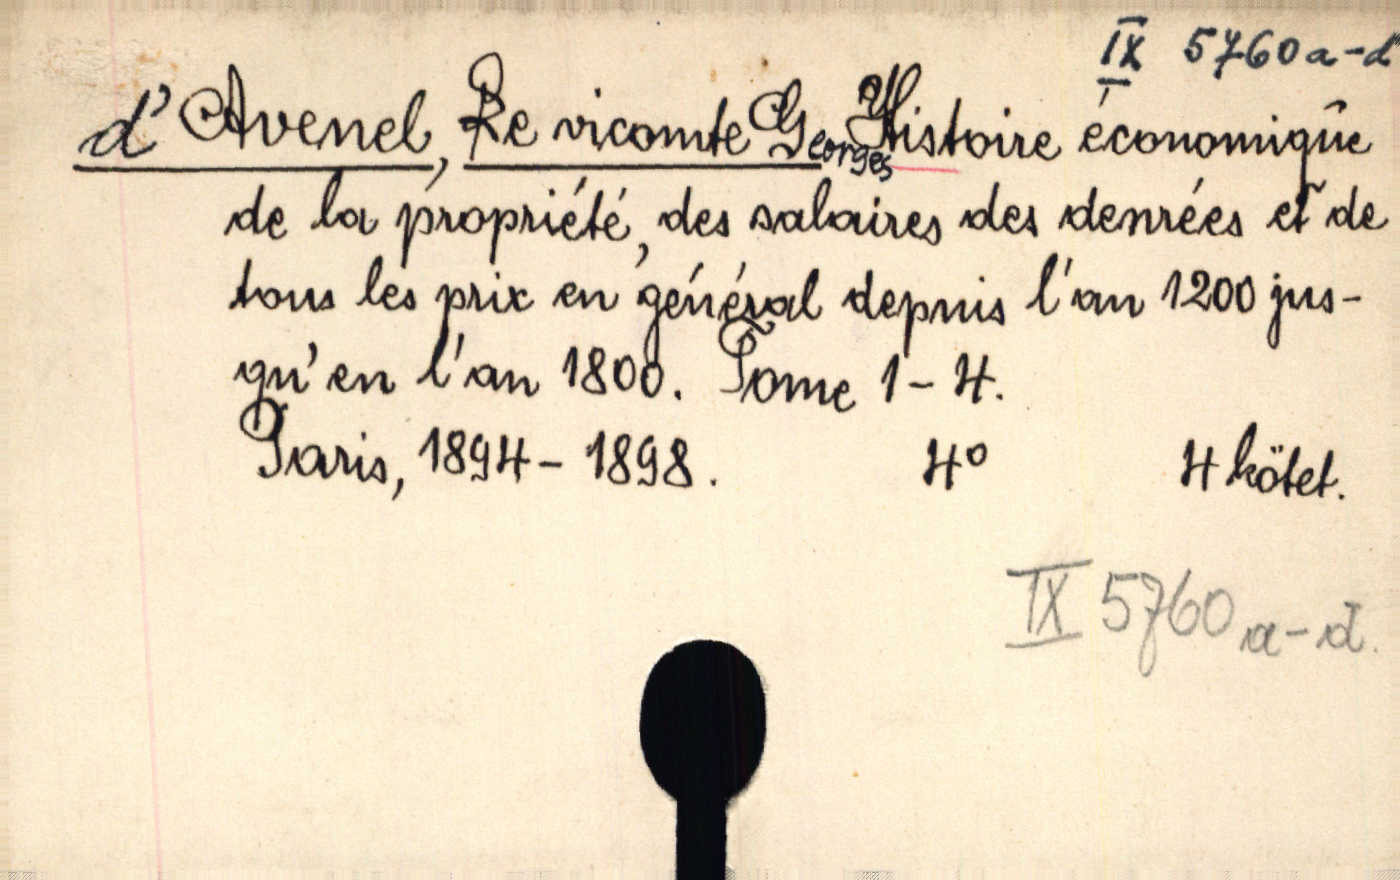 IX 5760 a-d
d'Avenel, Le vicomte Georges Histoire économique
de la propriété, des salaires des denrées et de
tous les prix en général depuis l'an 1200 jus-
qu'en l'an 1800. Tome 1-4.
Paris, 1894-1898. 4° 4 kötet.
IX 5760 a-d.